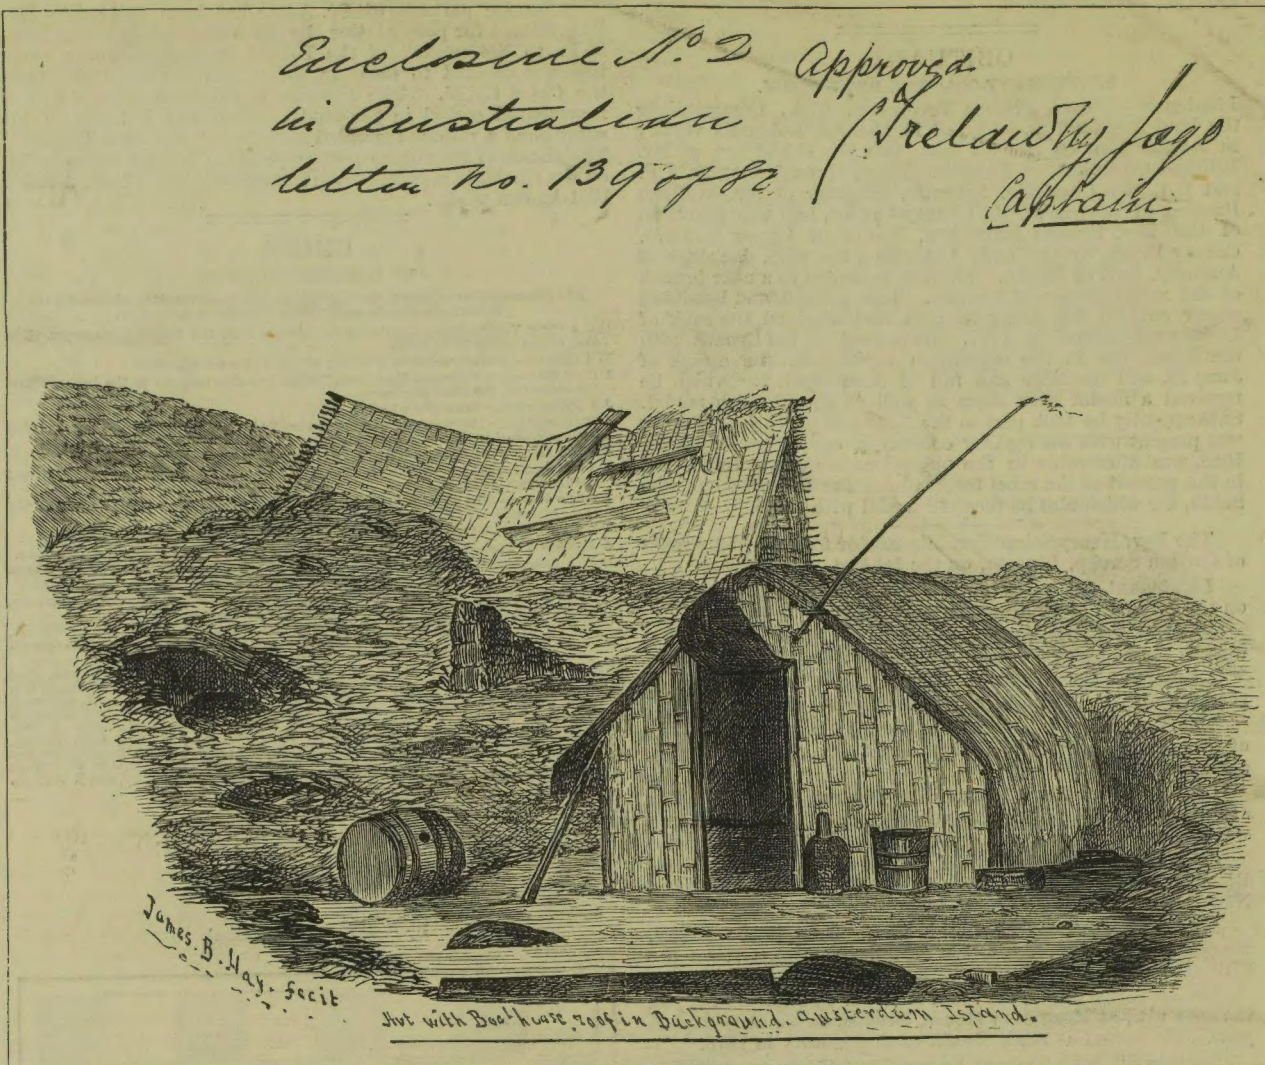 Enclosure No. 2
in Australian
letter No. 139 of 82
Approved
Trelawny Jago
Captain
James. B. Hay. fecit
Hut with Boathouse, roof in Background. Amsterdam Island.